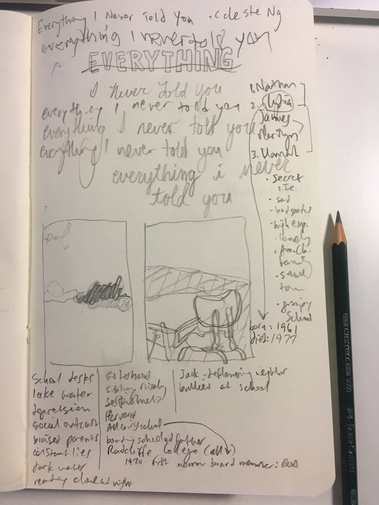 Everything I Never Told You - Celeste Ng
everything I never told you
EVERYTHING
I Never Told You
everything I never told you
everything I never told you
everything I never told you
everything i never
told you
1. Nathan
2. Lydia
James
Marilyn
3. Hannah
- secret
life
- sad
- bad grades
- high exp.
- lonely
family
- small
town
- gossipy
school
born: 1961
died: 1977
school desks
lake water
depression
social outcast
biased parents
constant lies
dark water
reading aloud at night
sisterhood
sibling rivalry
Harvard
boarding school
father
Radcliffe College (all
1920 first
Jack - neighbor
bullies at school